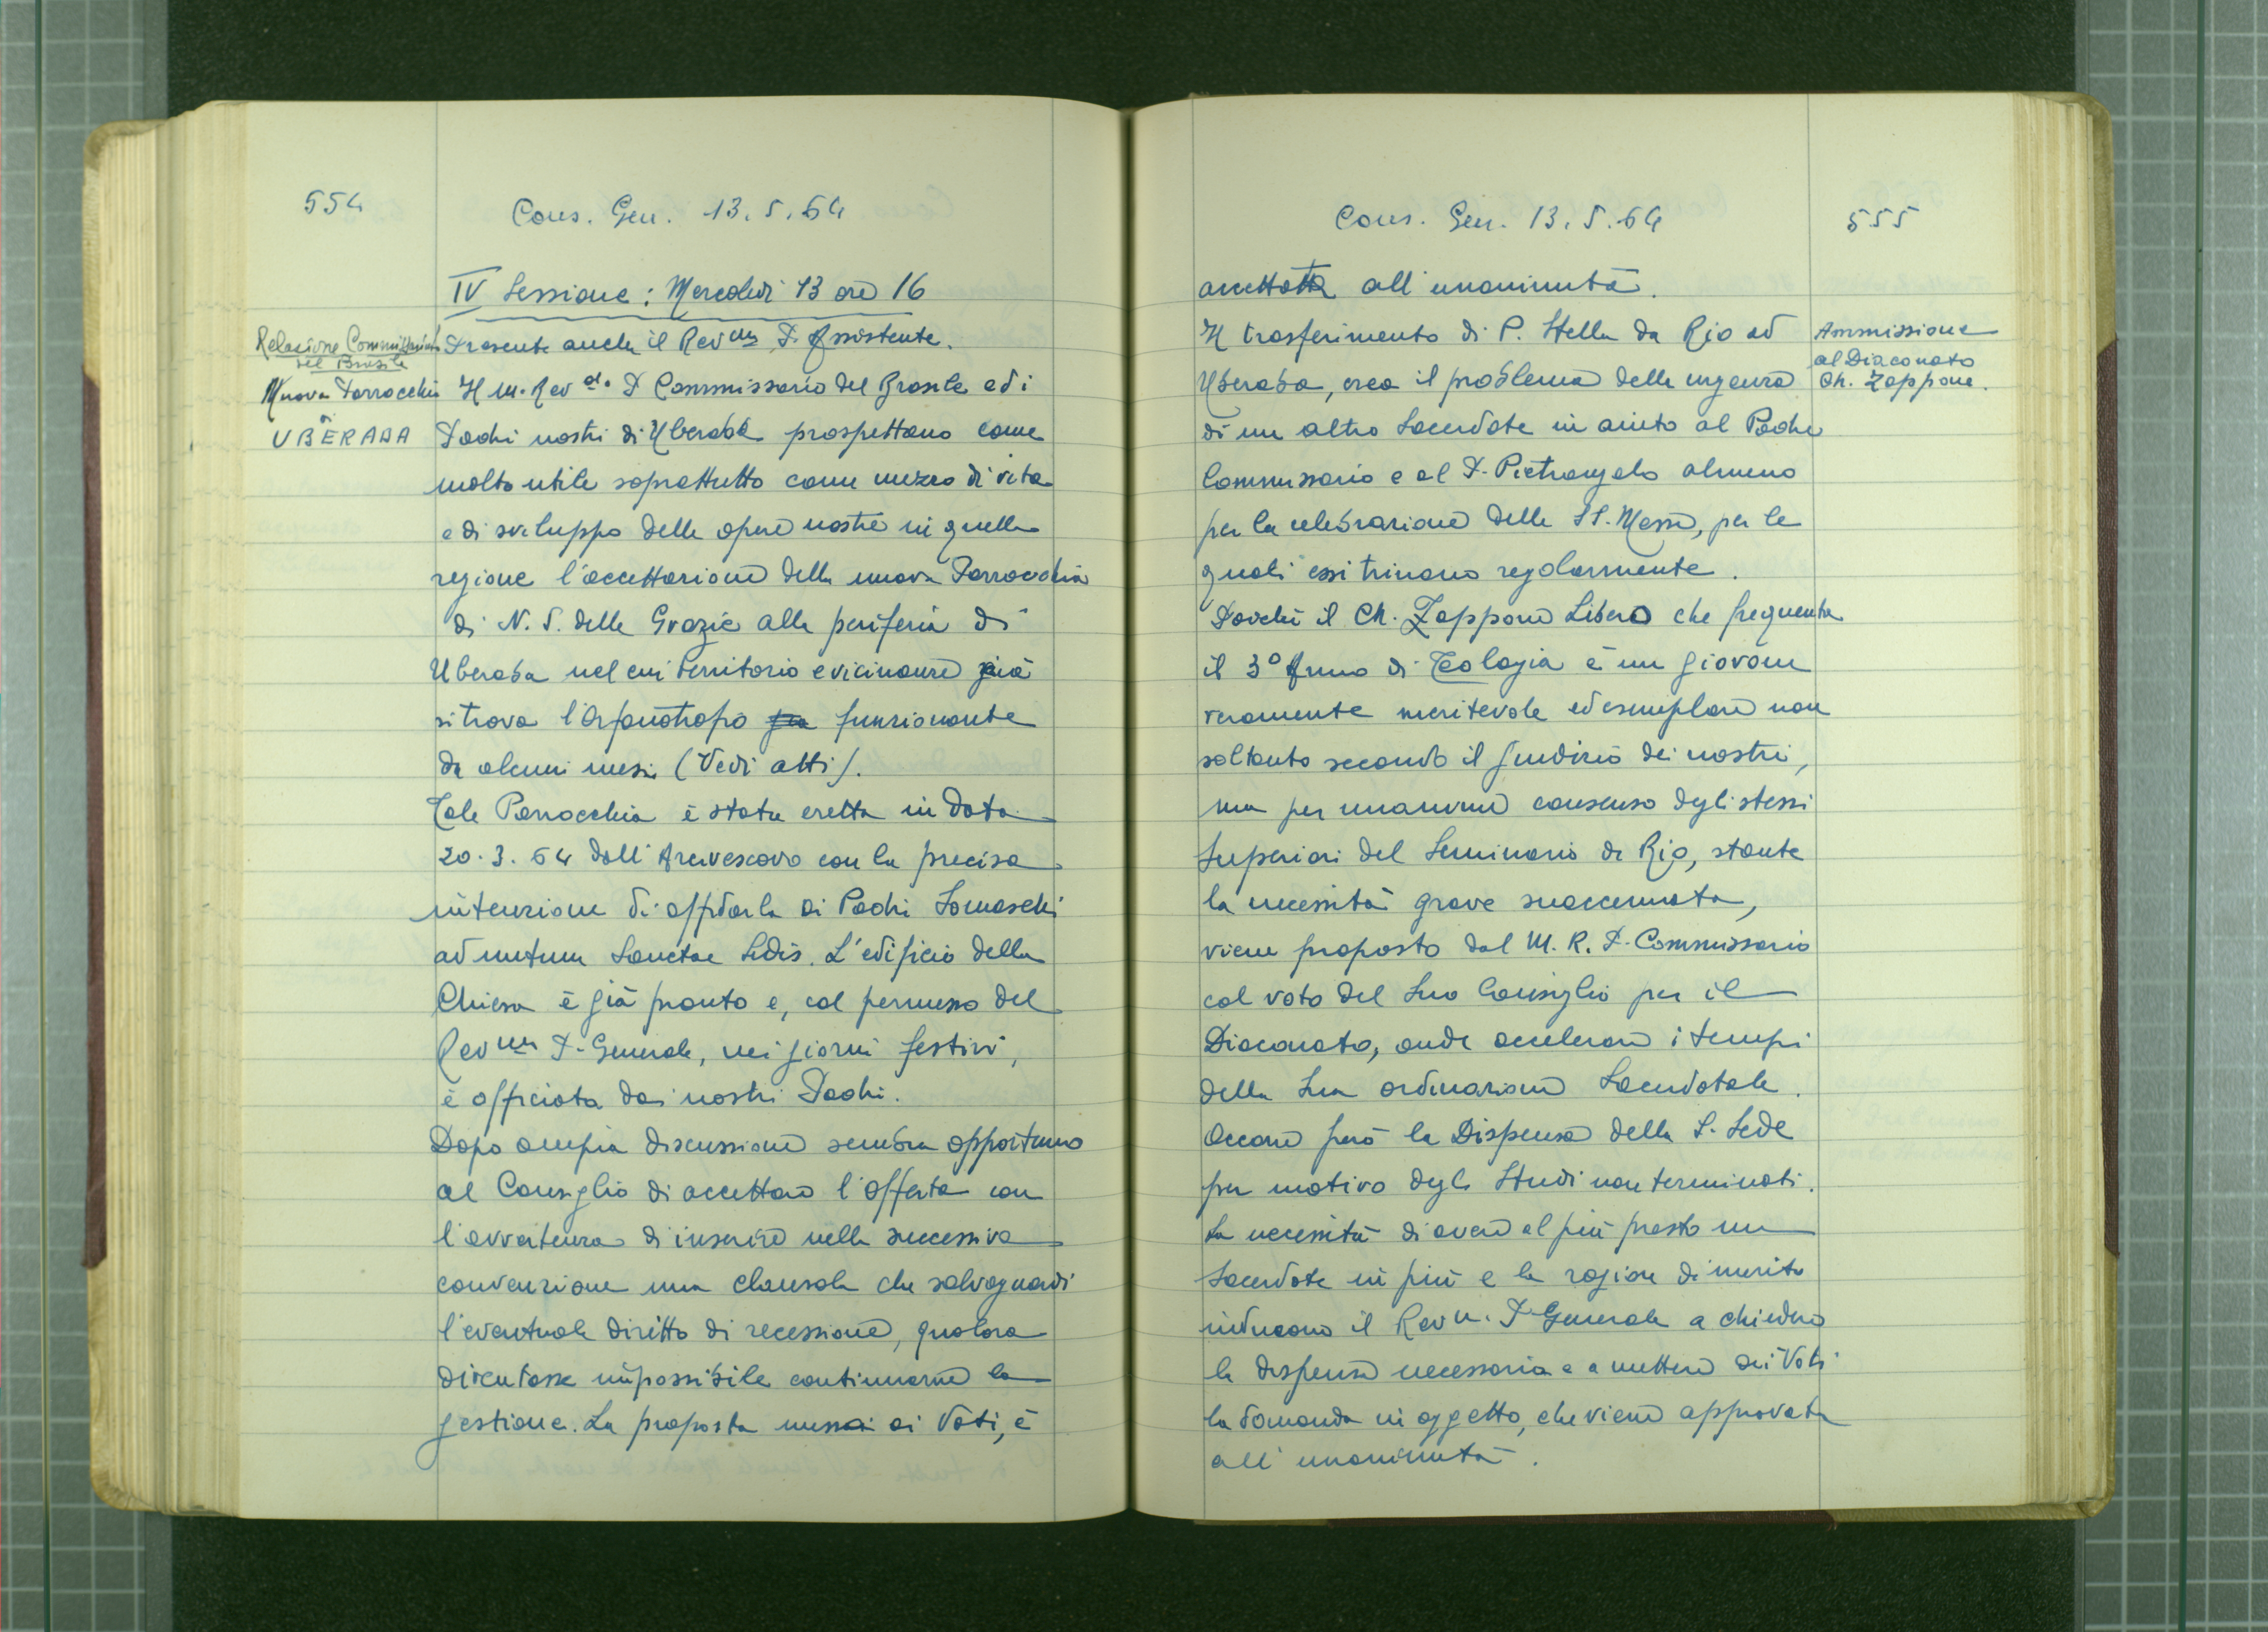 554
Cons. Gen. 13.5.64
IV Sessione: Mercoledì 13 ore 16
Relazione Commissario
del Brasile
Presente anche il Rev.mo P. Assistente.
Nuova Parrocchia
UBERABA
Il M. Rev.do P. Commissario del Brasile ed i
Padri nostri di Uberaba prospettano come
molto utile soprattutto come mezzo di vita
e di sviluppo delle opere nostre in quella
regione l'accettazione della nuova Parrocchia
di N. S. delle Grazie alla periferia di
Uberaba nel cui territorio e vicinanze già
si trova l'Orfanotrofio funzionante
da alcuni mesi (Vedi atti).
Tale Parrocchia è stata eretta in data
20.3.64 dall'Arcivescovo con la precisa
intenzione di affidarla ai Padri Somaschi
ad nutum Sanctae Sedis. L'edificio della
Chiesa è già pronto e, col permesso del
Rev.mo P. Generale, nei giorni festivi,
è officiata dai nostri Padri.
Dopo ampia discussione sembra opportuno
al Consiglio di accettare l'offerta con
l'avvertenza di inserire nella successiva
convenzione una clausola che salvaguardi
l'eventuale diritto di recessione, qualora
diventasse impossibile continuarne la
gestione. La proposta messa ai Voti, è
Cons. Gen. 13.5.64
555
accettata all'unanimità.
Il trasferimento di P. Stella da Rio ad
Uberaba, crea il problema della urgenza
di un altro Sacerdote in aiuto al Padre
Commissario e al P. Pietrangelo almeno
per la celebrazione delle SS. Messe, per le
quali essi trinano regolarmente.
Ammissione
al Diaconato
Ch. Zappone.
Poichè il Ch. Zappone Libero che frequenta
il 3° Anno di Teologia è un giovane
veramente meritevole ed esemplare non
soltanto secondo il giudizio dei nostri,
ma per unanime consenso degli stessi
Superiori del Seminario di Rio, stante
la necessità grave suaccennata,
viene proposto dal M. R. P. Commissario
col voto del Suo Consiglio per il
Diaconato, onde accelerare i tempi
della Sua ordinazione Sacerdotale.
Occorre però la Dispensa della S. Sede
per motivo degli Studi non terminati.
La necessità di avere al più presto un
Sacerdote in più e le ragioni di merito
inducono il Rev.mo P. Generale a chiedere
la dispensa necessaria e a mettere ai Voti
la domanda in oggetto, che viene approvata
all'unanimità.